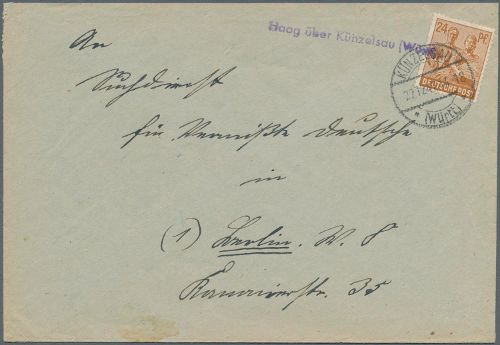 Haag über Künzelsau (Württ
24 PF
DEUTSCHE POST
KÜNZELSAU
(Württ)
An
Suchdienst
für Vermißte Deutsche
in
(1) Berlin. W. 8
Kanonierstr. 35